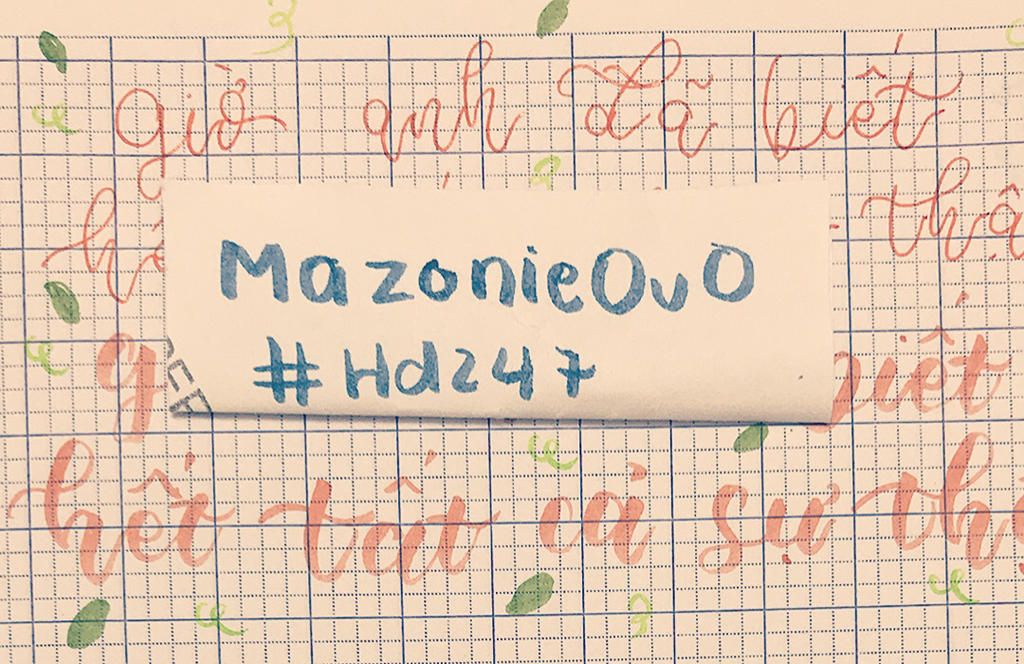 giờ anh đã biết
thậ
MazonieOvO
#Hd247
giết
hết tất cả sự th